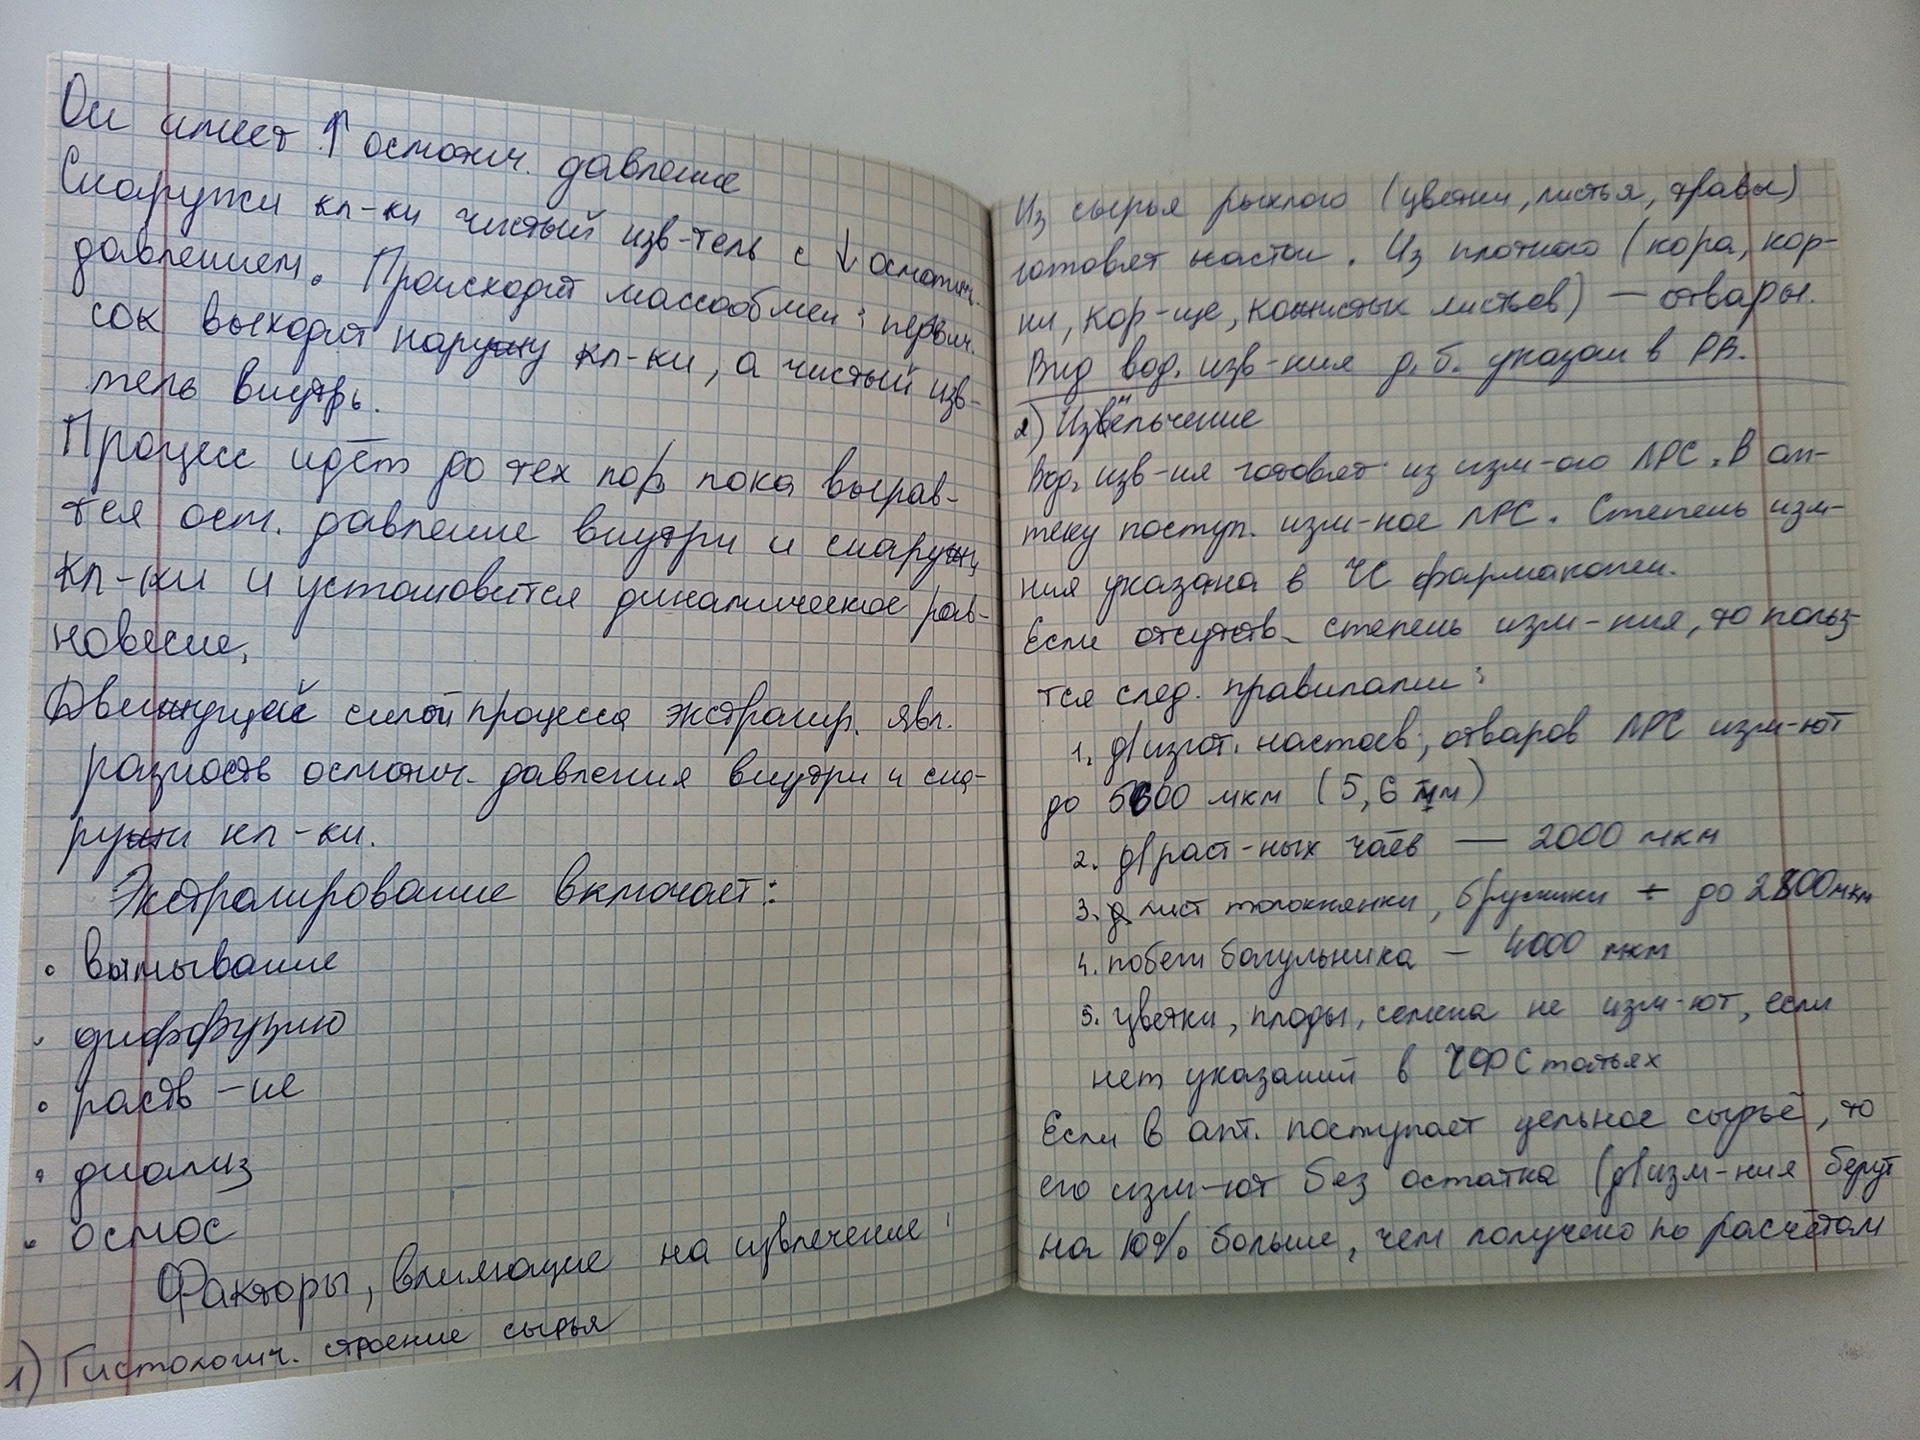 Он имеет ↑ осмотич. давление
Снаружи кл-ки чистый изв-тель с ↓ осмотич.
давлением. Происходит массообмен: первич.
сок выходит наружу кл-ки, а чистый изв-
тель внутрь.
Процесс идёт до тех пор, пока вырав-
тся осм. давление внутри и снаружи
кл-ки и установится динамическое рав-
новесие.
Движущей силой процесса экстракир. явл.
разность осмотич. давления внутри и сна-
ружи кл-ки.
Экстракирование включает:
• вымывание
• диффузию
• раств-ие
• диализ
• осмос
Факторы, влияющие на извлечение:
1) Гистологич. строение сырья
Из сырья рыхлого (цветки, листья, травы)
готовят настои. Из плотного (кора, кор-
ни, кор-ще, кожистых листьев) — отвары.
Вид вод. изв-ния д.б. указан в РВ.
2) Измельчение
Вод. изв-ия готовят из изм-ого ЛРС. В ап-
теку поступ. изм-ное ЛРС. Степень изм-
ния указана в ЧС фармакопеи.
Если отсутств. степень изм-ния, то польз-
тся след. правилами:
1. д/изгот. настоев, отваров ЛРС изм-ют
до 5600 мкм (5,6 мм)
2. д/раст-ных чаёв — 2000 мкм
3. лист толокнянки, брусники - до 2800 мкм
4. побеги багульника — 4000 мкм
5. цветки, плоды, семена не изм-ют, если
нет указаний в ЧФСтатьях
Если в апт. поступает цельное сырьё, то
его изм-ют без остатка (д/изм-ния берут
на 10% больше, чем получено по расчётам